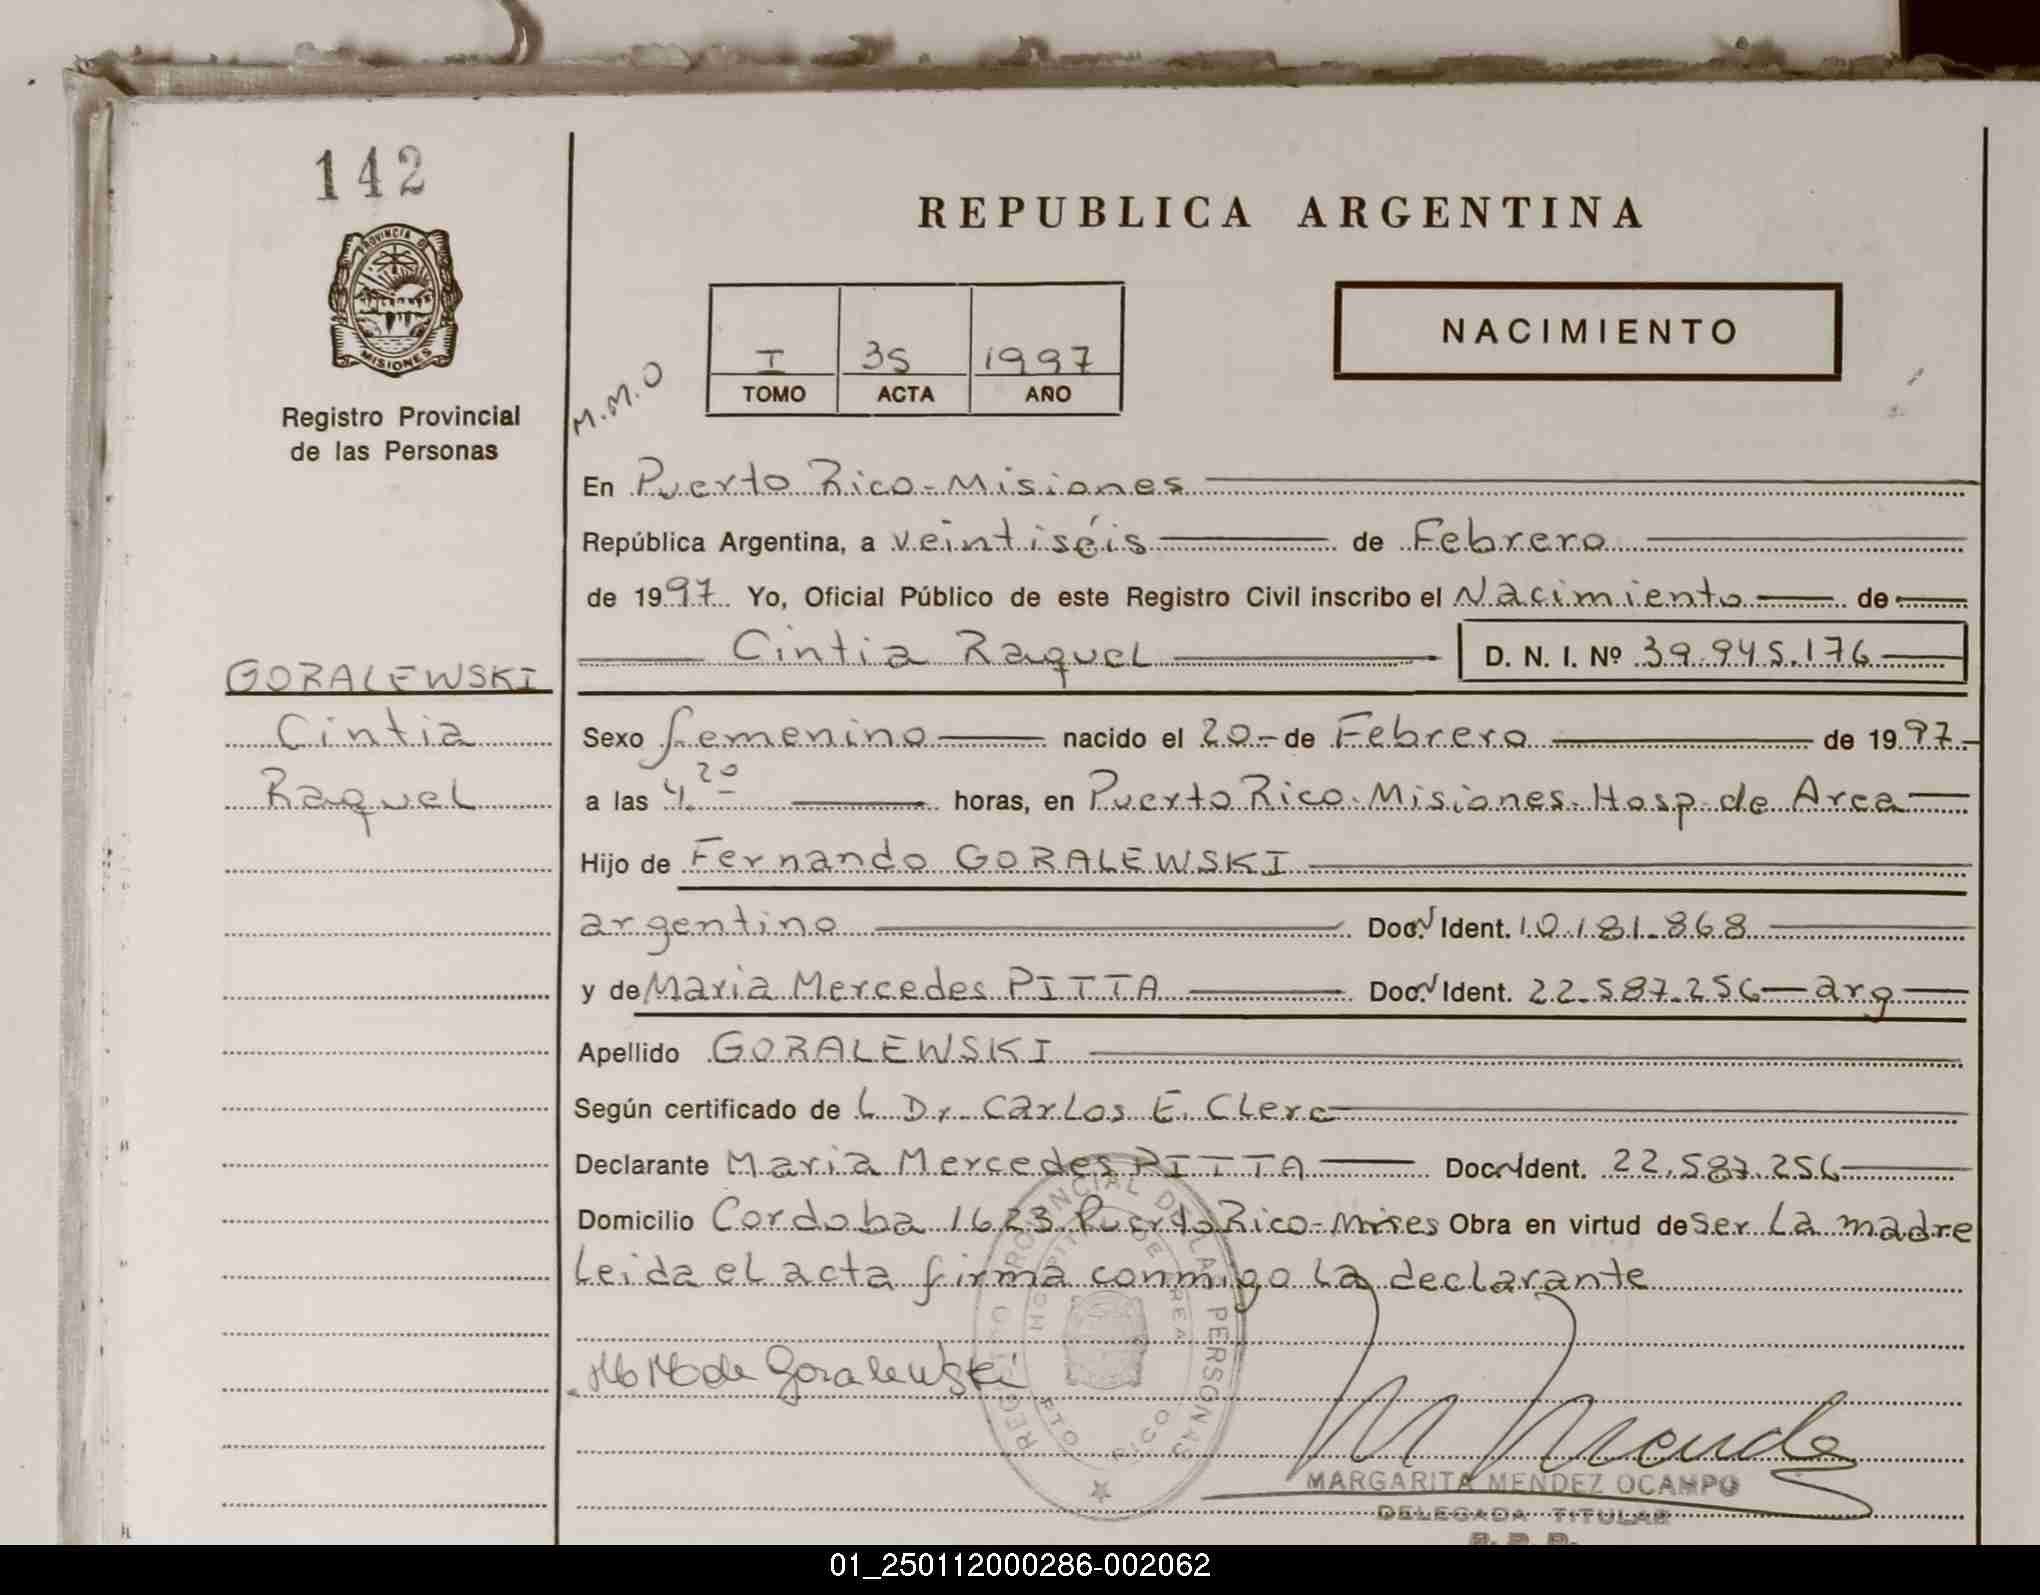 142
PROVINCIA DE
MISIONES
Registro Provincial
de las Personas
GORALEWSKI
Cintia
Raquel
REPUBLICA ARGENTINA
I 35 1997
TOMO ACTA AÑO
NACIMIENTO
M.M.O
En Puerto Rico - Misiones
República Argentina, a veintiséis de Febrero
de 1997 Yo, Oficial Público de este Registro Civil inscribo el Nacimiento de
Cintia Raquel D. N. I. Nº 39.945.176
Sexo femenino nacido el 20 - de Febrero de 1997
a las 4.20 horas, en Puerto Rico. Misiones. Hosp. de Area
Hijo de Fernando GORALEWSKI
argentino Doc. Ident. 10.181.868
y de Maria Mercedes PITTA Doc. Ident. 22.587.256 arg
Apellido GORALEWSKI
Según certificado de L Dr. Carlos E. Clerc
Declarante Maria Mercedes PITTA Doc. Ident. 22.587.256
Domicilio Cordoba 1623 Puerto Rico - Mnes Obra en virtud de ser la madre
Leida el acta firma conmigo la declarante
REGISTRO PROVINCIAL DE LAS PERSONAS
PTO RICO
de Goralewski
M Mende
MARGARITA MENDEZ OCAMPO
DELEGADA TITULAR
R. P. P.
01_250112000286-002062